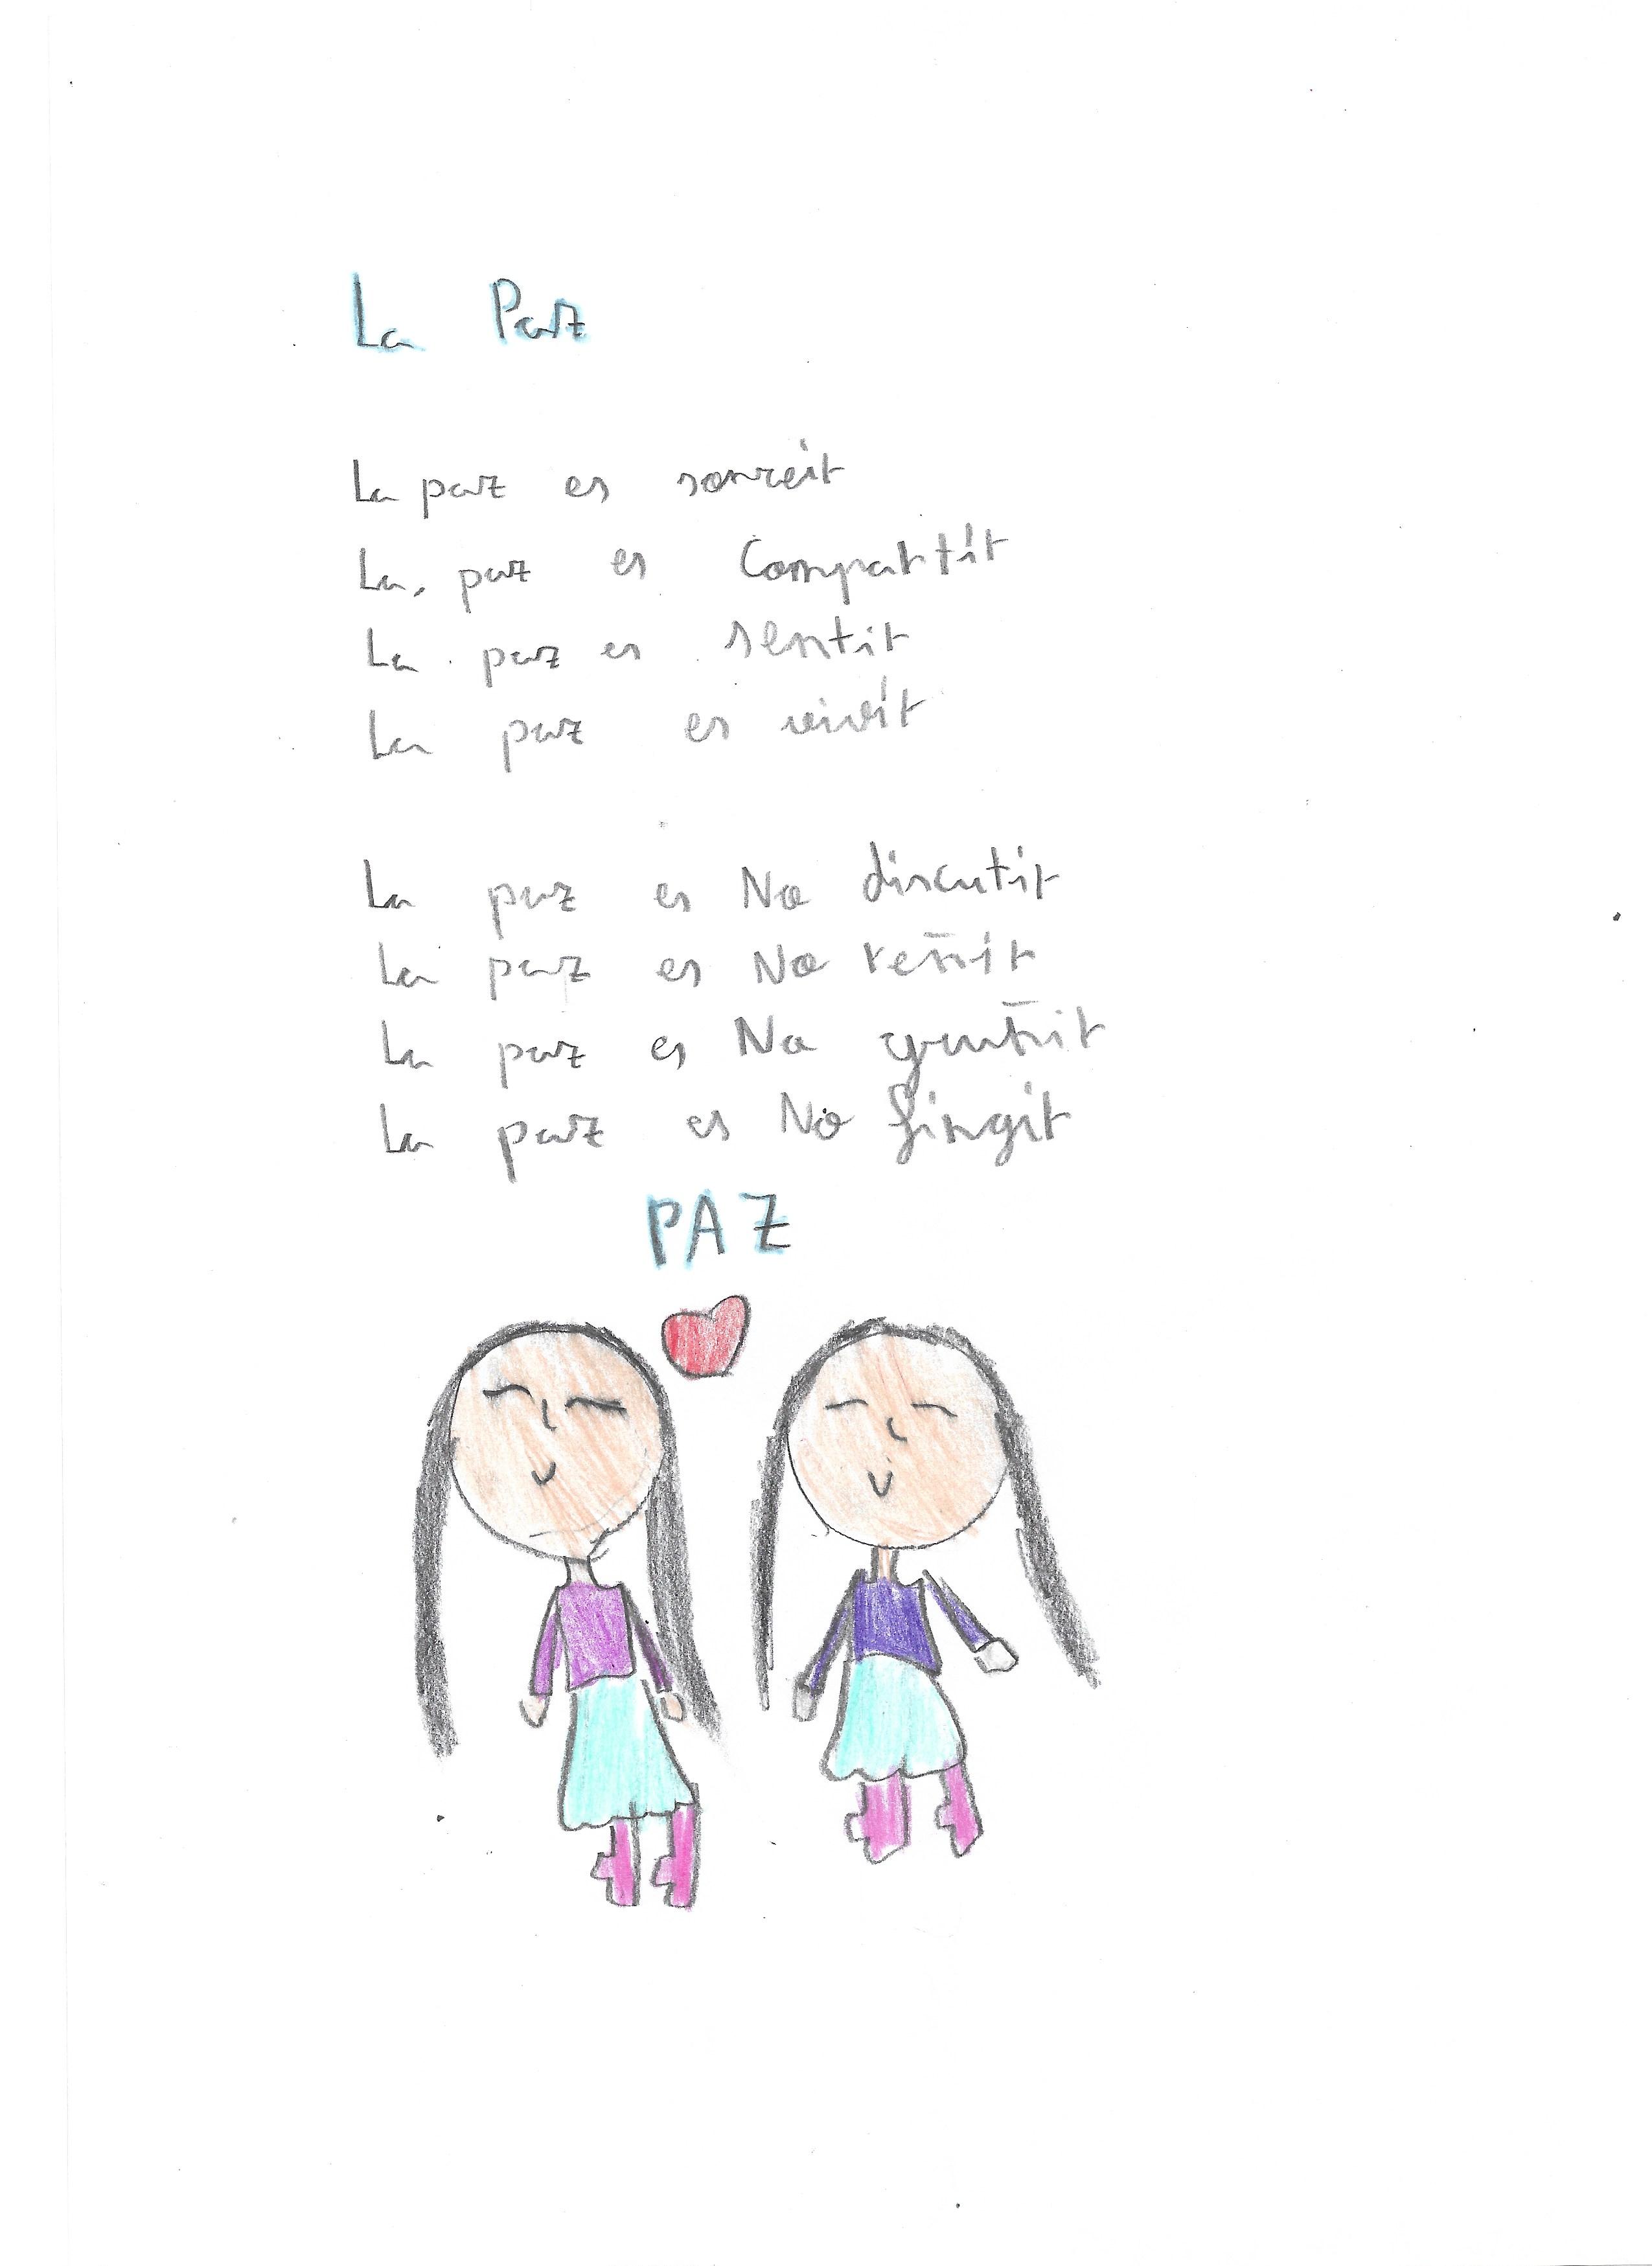 La Paz
La paz es sonreír
La paz es Compartír
La paz es sentir
La paz es vivír
La paz es No discutir
La paz es No reñir
La paz es No gruñir
La paz es No fingir
PAZ